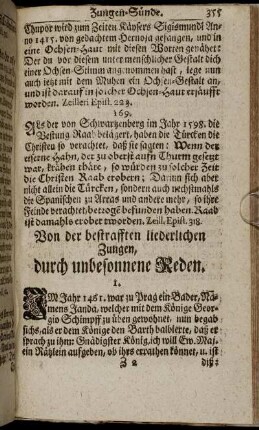 Zungen-Sünde. 355
Chupor wird zum Zeiten Käysers Sigismundi An-
no 1415. von gedachtem Hervoja gefangen, und in
eine Ochsen-Haut mit diesen Worten genähet:
Der du vor diesem unter menschlicher Gestalt dich
einer Ochsen-Stimm angenommen hast, lege nun
auch jetzt mit dem Muhen ein Ochsen-Gestalt an,
und ist darauf in solcher Ochsen-Haut ersäufft
worden. Zeilleri Epist. 223.
169.
Als der von Schwartzenberg im Jahr 1598. die
Vestung Raab belägert, haben die Türcken die
Christen so verachtet, daß sie sagten: Wenn der
eiserne Hahn, der zu oberst aufn Thurm gesetzt
war, krähen thäte, so würden zu solcher Zeit
die Christen Raab erobern; Dann sich aber
nicht allein die Türcken, sondern auch nachmahls
die Spanischen zu Arras und andere mehr, so ihre
Feinde verachtet, betrogē befunden haben. Raab
ist damahls erobert worden. Zeill. Epist. 313.
Von der bestrafften liederlichen
Zungen,
durch unbesonnene Reden.
1.
IM Jahr 1461. war zu Prag ein Bader, Na-
mens Janda, welcher mit dem Könige Geor-
gio Schimpff zu üben gewohnet, nun begab
sichs, als er dem Könige den Barth balbierte, daß er
sprach zu ihm: Gnädigster König, ich will Ew. Maj.
ein Rätzlein aufgeben, ob ihrs errathen könnet, u. ist
Z 2 diß: